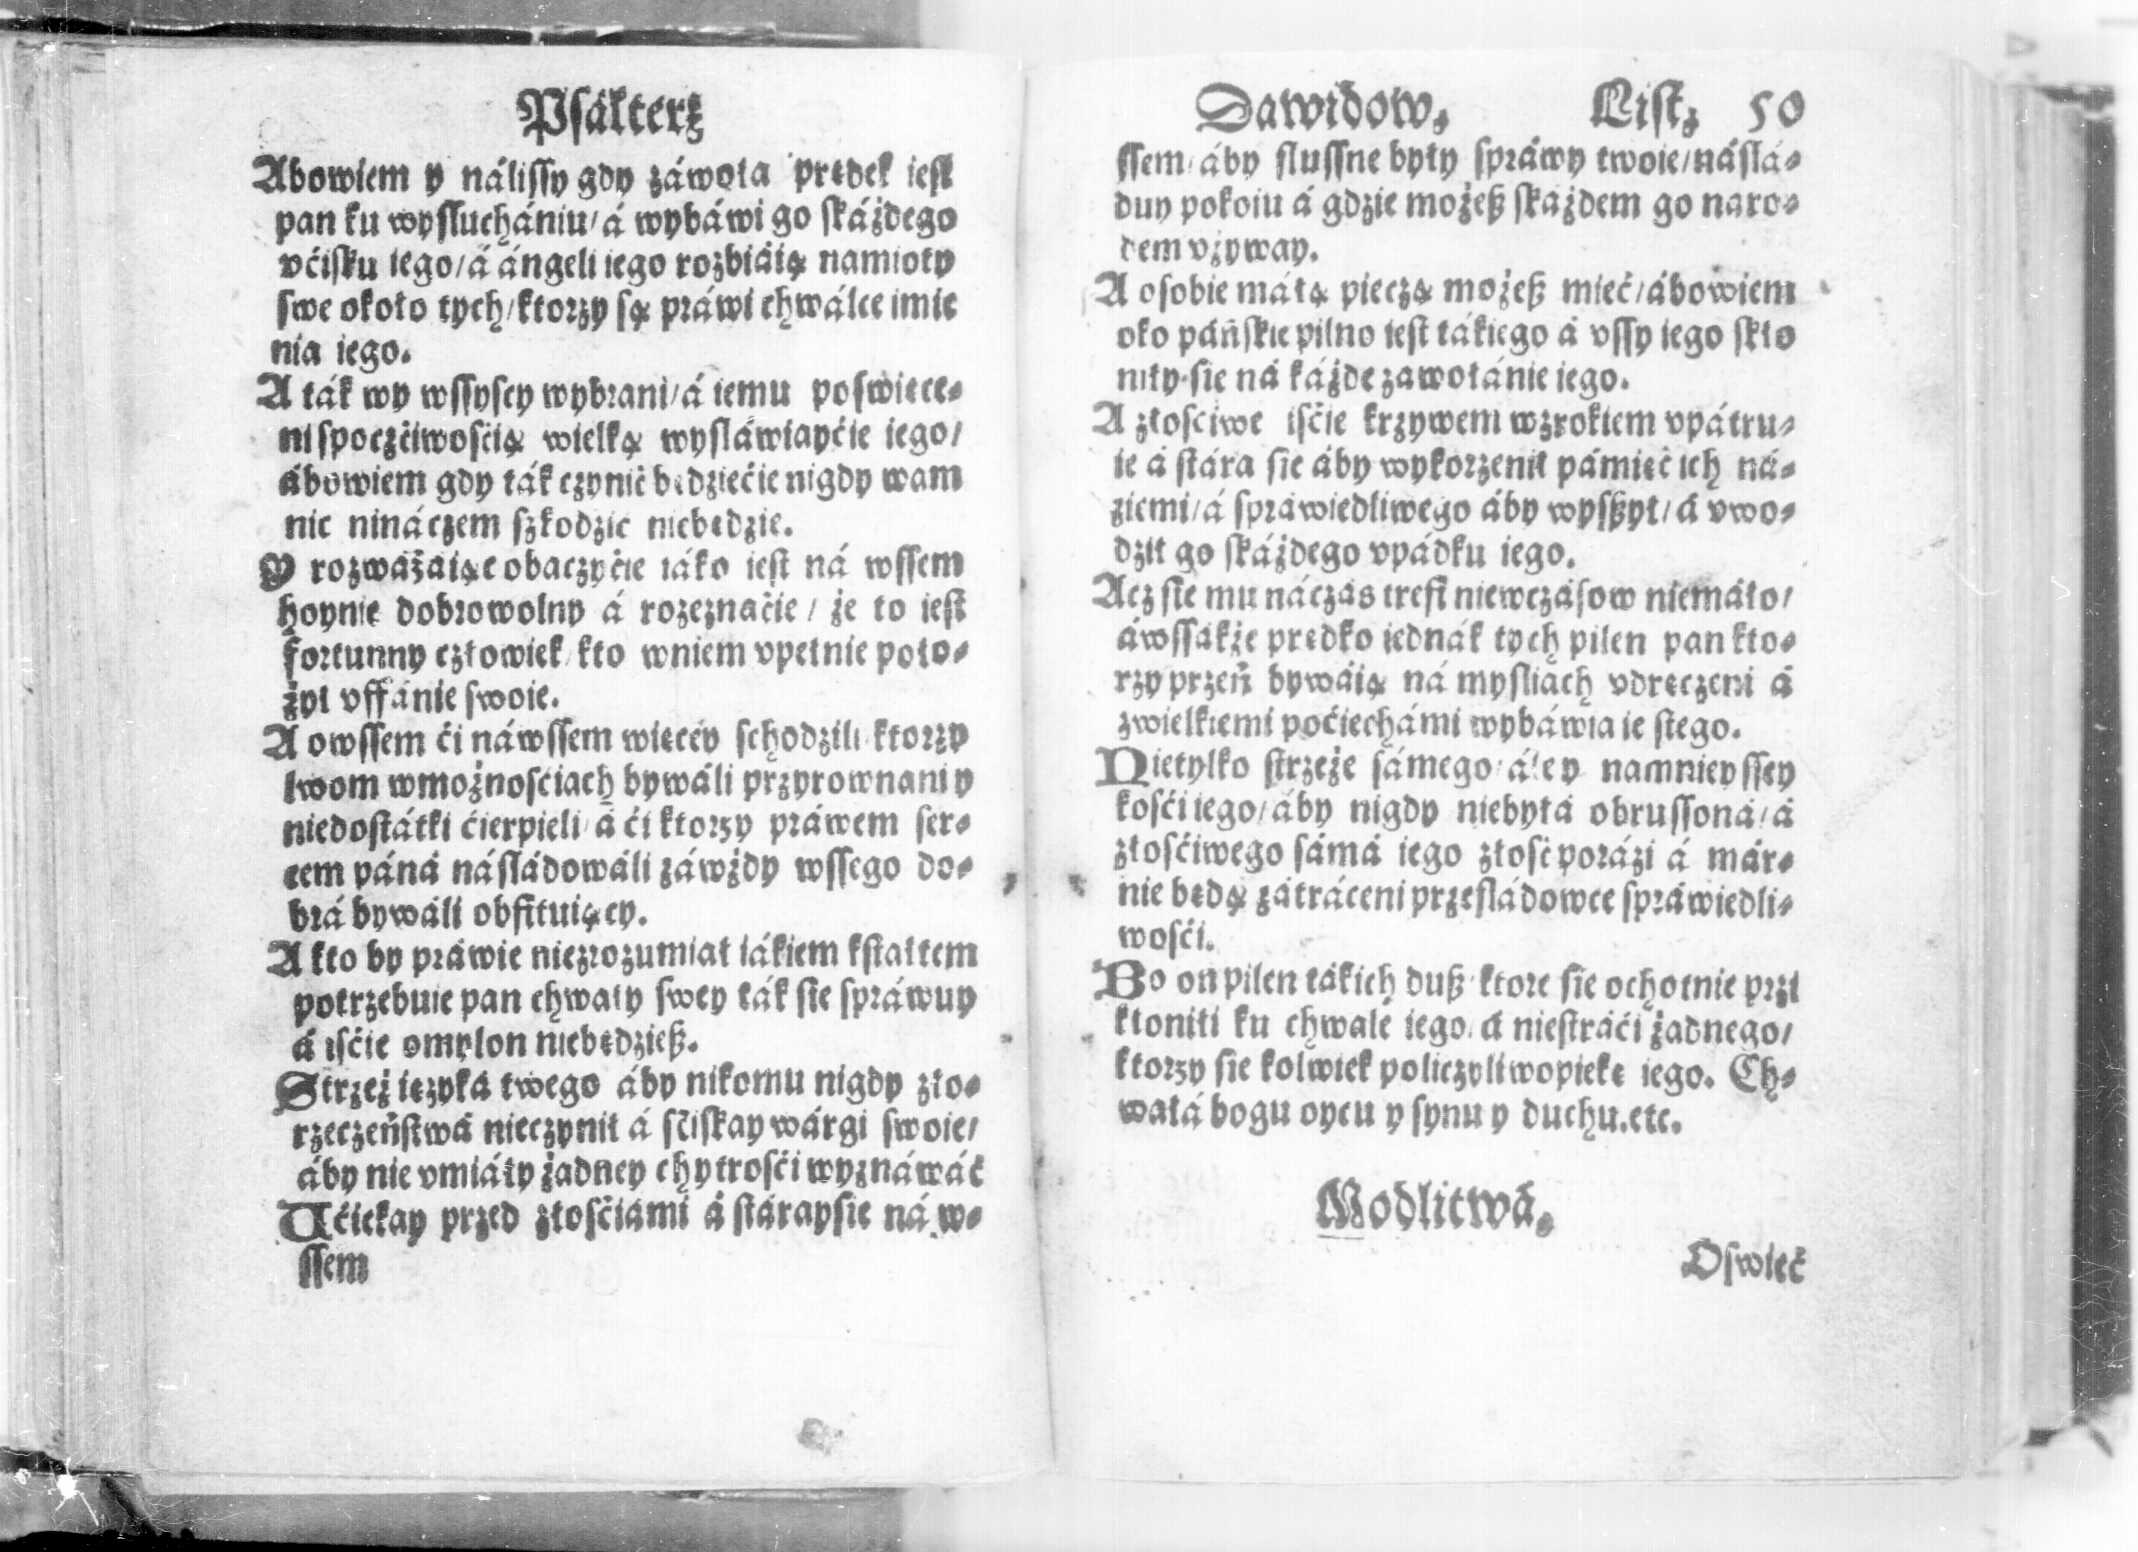 Psałterz
Abowiem y nálissy gdy záwoła prędek iest
pan ku wysłuchániu/ á wybáwi go skáżdego
vćisku iego/ á ángeli iego rozbiáią namioty
swe około tych/ ktorzy są práwi chwálce imie
nia iego.
A ták wy wssyscy wybrani/ á iemu poswięce-
ni spoczćiwosćią wielką wysláwiayćie iego/
ábowiem gdy ták czynić będziećie nigdy wam
nic nináczem szkodzić niebędzie.
Y rozważáiąc obaczyćie iáko iest ná wssem
hoynie dobrowolny á rozeznaćie/ że to iest
fortunny człowiek/ kto wniem vpełnie poło-
żył vffánie swoie.
A owssem ći náwssem więcey schodzili/ ktorzy
lwom wmożnosćiach bywáli przyrownani y
niedostátki ćierpieli/ á ći ktorzy práwem ser-
cem páná násládowáli záwżdy wssego do-
brá bywáli obfituiący.
A kto by práwie niezrozumiał iákiem kstałtem
potrzebuie pan chwały swey ták sie spráwuy
á isćie omylon niebędzieß.
Strzeż ięzyká twego áby nikomu nigdy zło-
rzeczeństwá nieczynił á sćiskay wárgi swoie/
áby nie vmiáły żadney chytrosći wyznáwáć
Vćiekay przed złosćiámi á stáraysie ná w-
ssem
Dawidow. List, 50
ssem/ áby slussne były spráwy twoie/ násla-
duy pokoiu á gdzie możeß skażdem go naro-
dem vżyway.
A osobie máłą pieczą możeß mieć/ ábowiem
oko páńskie pilno iest tákiego á vssy iego skło
niły sie ná káżde zawołánie iego.
A złosciwe isćie krzywem wzrokiem vpátru-
ie á stára sie áby wykorzenił pámięć ich ná-
ziemi/ á spráwiedliwego áby wysßył/ á vwo-
dził go skáżdego vpádku iego.
Acz sie mu náczás trefi niewczasow niemáło/
áwssákże prędko iednák tych pilen pan kto-
rzy przeń bywáią ná mysliach vdręczeni á
zwielkiemi poćiechámi wybáwia ie stego.
Nietylko strzeże sámego/ ále y namnieyssey
kosći iego/ áby nigdy niebyłá obrussoná/ á
złosćiwego sámá iego złosć porázi á már-
nie będą zátráceni przesládowce spráwiedli-
wosći.
Bo on pilen tákich duß/ ktore sie ochotnie przi
kłonili ku chwale iego/ á niestráći żadnego/
ktorzy sie kolwiek policzyli wopiekę iego. Ch-
wałá bogu oycu y synu y duchu.etc.
Modlitwá.
Oswieć